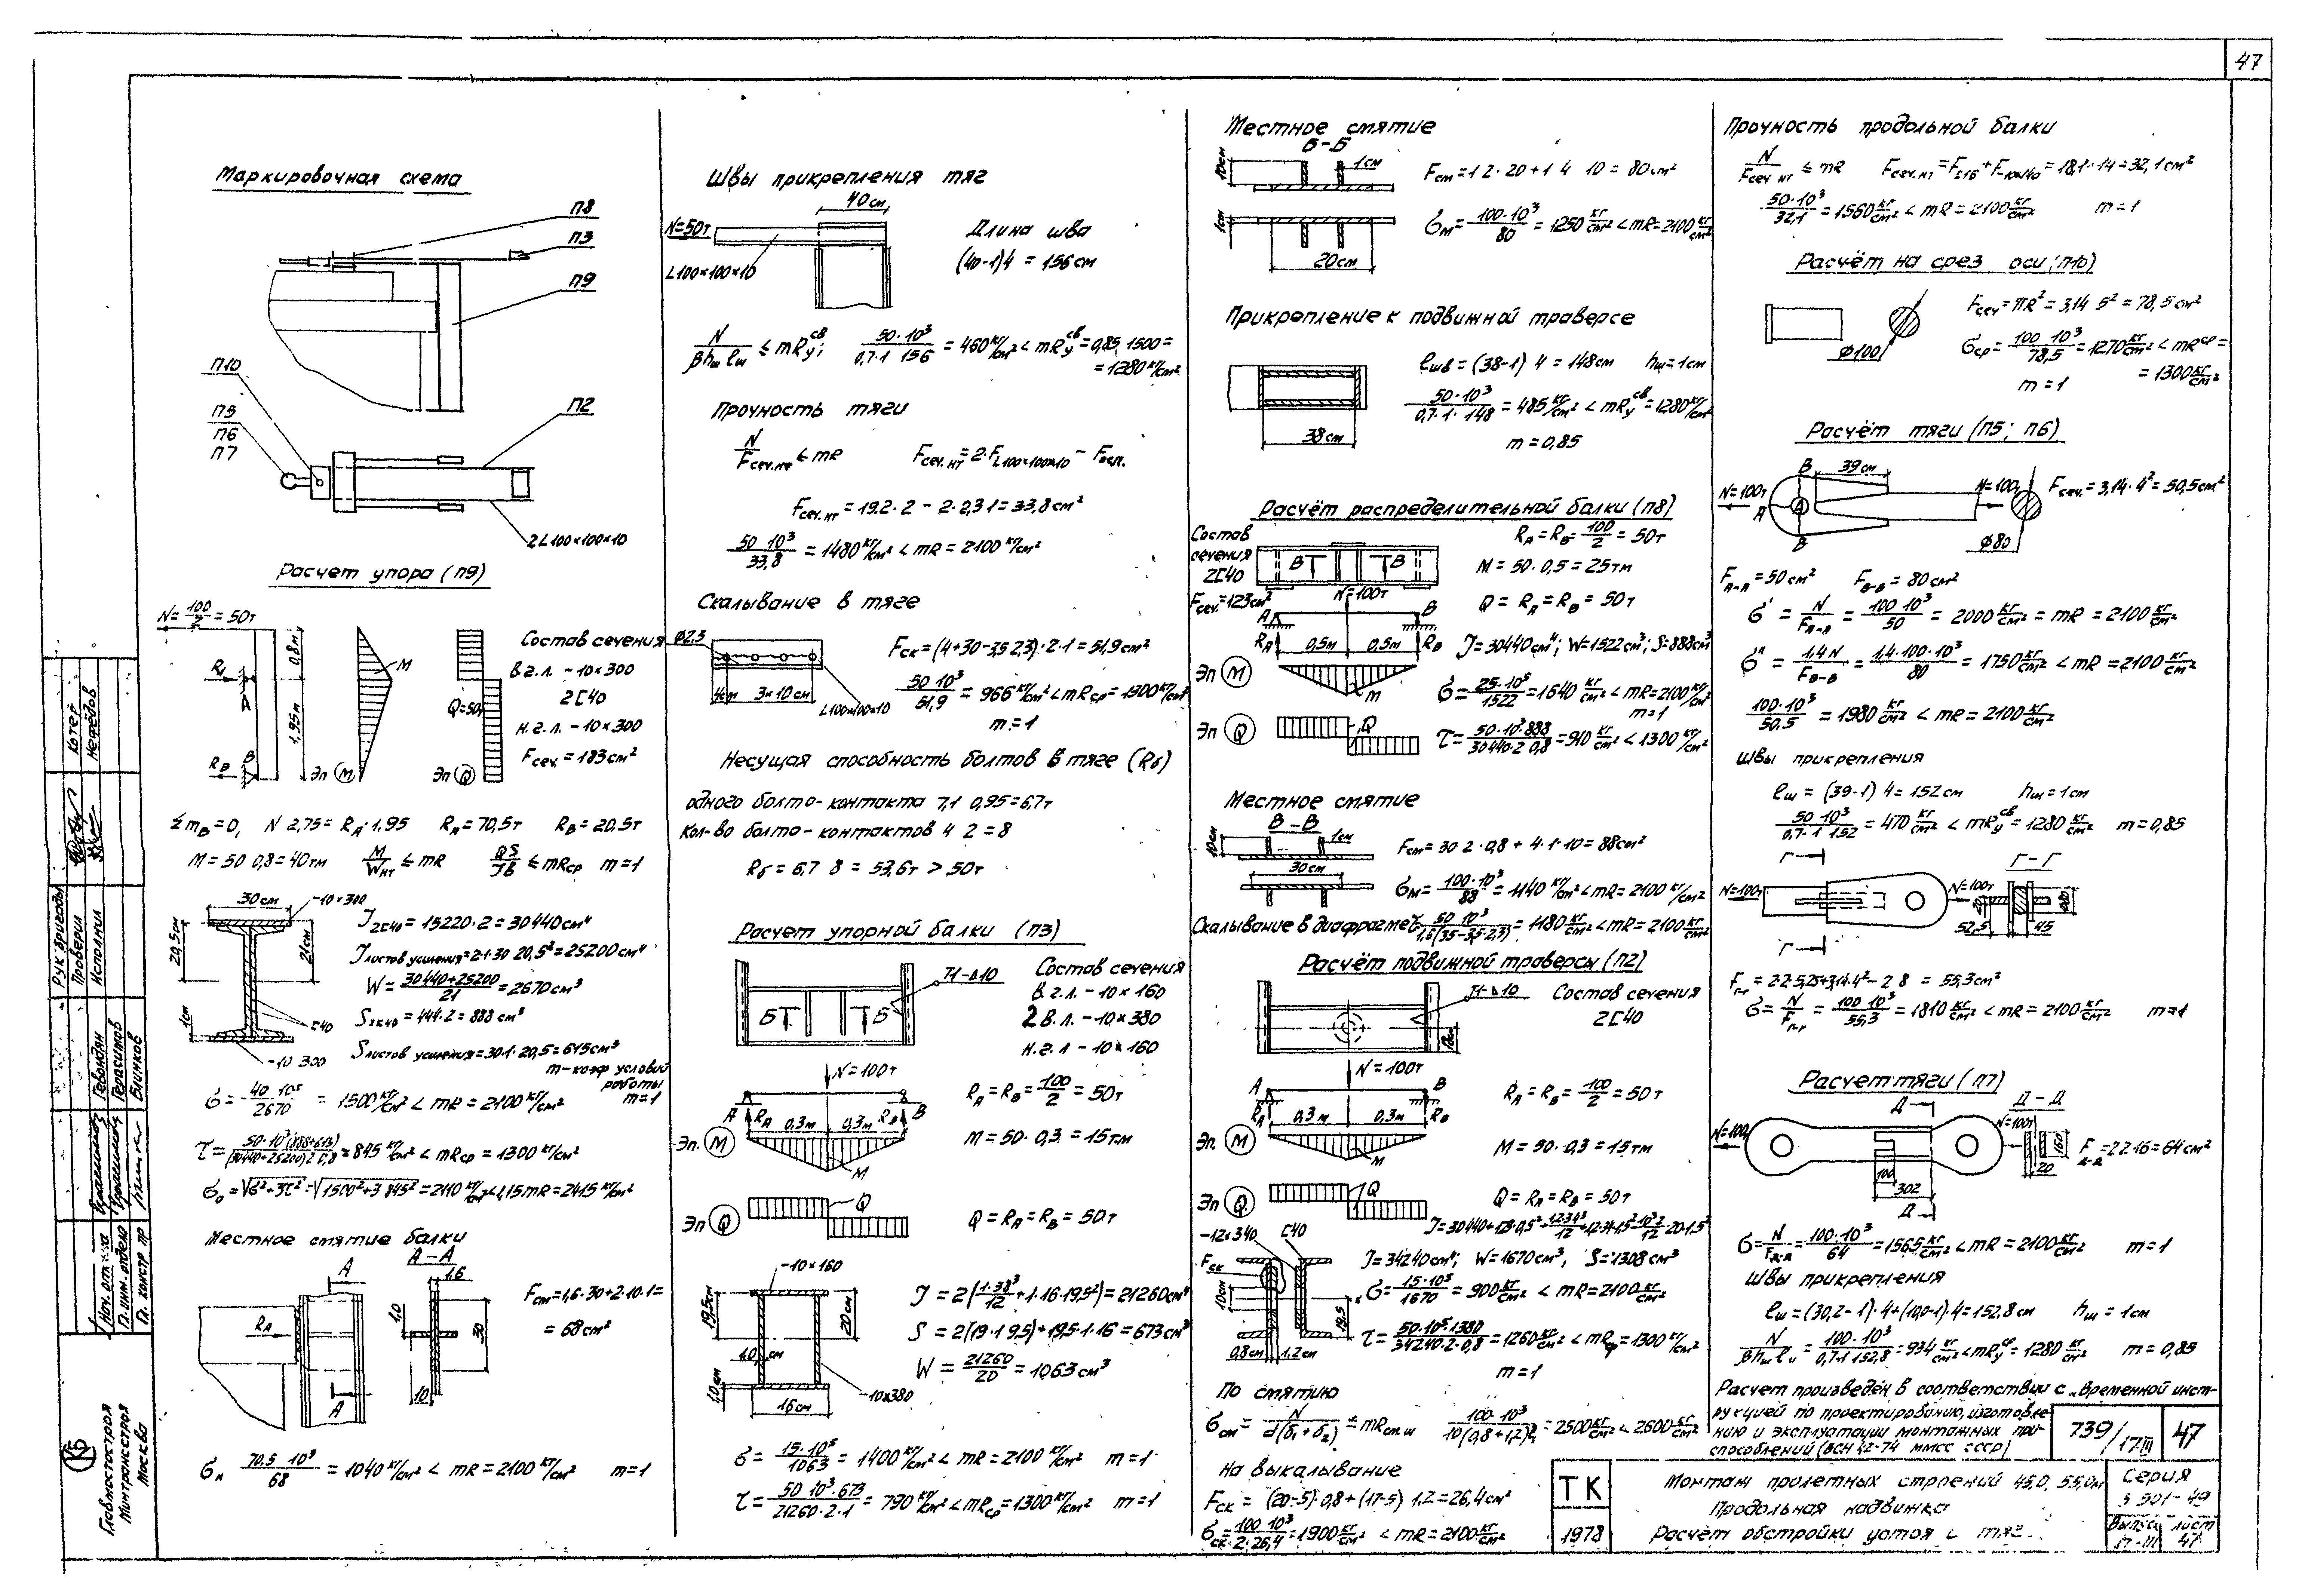 47
Маркировочная схема
П8
П3
П9
П10
П5
П6
П7
П2
2L100×100×10
Расчет упора (П9)
N=100/2=50т
0,8м
1,95м
R_A
A
R_B
B
M
Эп (M)
Q=50т
Эп (Q)
Состав сечения
в.г.л. -10×300
2[40
н.г.л. -10×300
Fсеч.=183см²
Σm_B=0, N 2,75=R_A·1,95 R_A=70,5т R_B=20,5т
M=50 0,8=40тм M/Wнт ≤ mR QS/Jδ ≤ mRср m=1
30см
-10×300
20,5см
21см
1см
[40
-10 300
J2[40=15220·2=30440см⁴
Jлистов усиления=2·1·30 20,5²=25200см⁴
W=(30440+25200)/21=2670см³
S2[40=444·2=888см³
Sлистов усиления=30·1·20,5=615см³
m-коэф условий
работы
m=1
σ=40·10⁵/2670 = 1500 кг/см² < mR=2100 кг/см²
τ=50·10³(888+613)/(30440+25200)2 0,8=845 кг/см² < mRср=1300 кг/см²
σ₀=√σ²+3τ²=√1500²+3 845²=2110 кг/см²<1,15mR=2415 кг/см²
Местное смятие балки
А-А
A
1,6
R_A
1,0
30
10
A
Fсм=1,6·30+2·10·1=
=68см²
σм 70,5 10³/68 = 1040 кг/см² < mR=2100 кг/см² m=1
Швы прикрепления тяг
40см
N=50т
L100×100×10
Длина шва
(40-1)4=156см
N/βhшlш ≤ mRу^св; 50·10³/0,7·1 156 = 460 кг/см² < mRу^св=0,85 1500=
=1280 кг/см²
Прочность тяги
N/Fсеч.нт ≤ mR Fсеч.нт=2·FL100×100×10 - Fосл.
Fсеч.нт=19,2·2-2·2,3·1=33,8см²
50 10³/33,8 = 1480 кг/см² < mR=2100 кг/см²
Скалывание в тяге
Ф2,3
4см 3×10см
L100×100×10
Fск=(4+30-3,5 2,3)·2·1=51,9см²
50 10³/51,9 = 966 кг/см² < mRср=1300 кг/см²
m=1
Несущая способность болтов в тяге (Rб)
одного болто-контакта 7,1 0,95=6,7т
Кол-во болто-контактов 4 2=8
Rб=6,7 8=53,6т > 50т
Расчет упорной балки (П3)
Б Б
Т1-Δ10
Состав сечения
в.г.л. -10×160
2В.л. -10×380
н.г.л -10×160
N=100т
A R_A 0,3м 0,3м R_B B
Эп. (M)
M
R_A=R_B=100/2=50т
M=50·0,3=15т.м
Эп (Q)
Q
Q=R_A=R_B=50т
-10×160
19,5см
20см
1,0 см
1,0см
16см
-10×380
J=2(1·38³/12+1·16·19,5²)=21260см⁴
S=2(19·1 9,5)+19,5·1·16=673см³
W=21260/20=1063см³
σ=15·10⁵/1063=1400 кг/см² < mR=2100 кг/см² m=1
τ=50 10³·673/21260·2·1=790 кг/см² < mRср=1300 кг/см² m=1
Местное смятие
Б-Б
10см
1см
1см
20см
Fсм=1 2·20+1 4 10=80см²
σм=100·10³/80=1250 кг/см² < mR=2100 кг/см²
Прикрепление к подвижной траверсе
38см
lшв=(38-1) 4=148см hш=1см
50·10³/0,7·1·148=485 кг/см² < mRу^св=1280 кг/см²
m=0,85
Расчёт распределительной балки (П8)
Состав
сечения
2[40
Fсеч.=123см²
В В
R_A=R_B=100/2=50т
M=50·0,5=25тм
Q=R_A=R_B=50т
N=100т
A B
R_A 0,5м 0,5м R_B
J=30440см⁴; W=1522см³; S=888см³
Эп (M)
M
σ=25·10⁵/1522=1640 кг/см² < mR=2100 кг/см²
m=1
Эп (Q)
Q
τ=50·10³·888/30440·2 0,8=910 кг/см² < 1300 кг/см²
Местное смятие
В-В
10см
1см
30см
Fсм=30 2·0,8+4·1·10=88см²
σм=100·10³/88=1140 кг/см² < mR=2100 кг/см²
Скалывание в диафрагме τ=50 10³/1,6(35-3,5·2,3)=1180 кг/см² < mR=2100 кг/см²
Расчёт подвижной траверсы (П2)
Т1-Δ10
Состав сечения
2[40
N=100т
A B
R_A 0,3м 0,3м R_B
R_A=R_B=100/2=50т
Эп (M)
M
M=50·0,3=15тм
Эп (Q)
Q
Q=R_A=R_B=50т
-12×340 [40
Fск
10см
19,5
0,8см 1,2см
J=34240см⁴; W=1670см³; S=1308см³
σ=15·10⁵/1670=900 кг/см² < mR=2100 кг/см²
τ=50·10³·1380/34240·2·0,8=1260 кг/см² < mRср=1300 кг/см²
m=1
По смятию
σсм=N/d(δ₁+δ₂) ≤ mRсм.ш 100·10³/10(0,8+1,2)2=2500 кг/см² < 2600 кг/см²
На выкалывание
Fск=(20-5)·0,8+(17-5) 1,2=26,4см²
σск=100 10³/2·26,4=1900 кг/см² < mR=2100 кг/см²
Прочность продольной балки
N/Fсеч.нт ≤ mR Fсеч.нт=F[16+F-10×140=18,1+14=32,1см²
50·10³/32,1=1560 кг/см² < mR=2100 кг/см² m=1
Расчёт на срез оси (П10)
Ф100
Fсеч=πR²=3,14 5²=78,5см²
σср=100 10³/78,5=1270 кг/см² < mRср=
=1300 кг/см²
m=1
Расчёт тяги (П5; П6)
В 39см
N=100т
А А
В
N=100т
Ф80
Fсеч.=3,14·4²=50,5см²
FА-А=50см² FВ-В=80см²
σ'=N/FА-А=100 10³/50=2000 кг/см²=mR=2100 кг/см²
σ''=1,4N/FВ-В=1,4·100·10³/80=1750 кг/см² < mR=2100 кг/см²
100·10³/50,5=1980 кг/см² < mR=2100 кг/см²
Швы прикрепления
lш=(39-1) 4=152см hш=1см
50·10³/0,7·1 152=470 кг/см² < mRу^св=1280 кг/см² m=0,85
Г Г-Г
N=100т N=100т
52,5 45
Г
Fг-г=2·2·5,25+3,14·4²-2 8=55,3см²
σ=N/Fг-г=100 10³/55,3=1810 кг/см² < mR=2100 кг/см² m=1
Расчет тяги (П7)
Д Д-Д
N=100т N=100т
160
20
100
302
Д
FД-Д=2·2·16=64см²
σ=N/FД-Д=100·10³/64=1565 кг/см² < mR=2100 кг/см² m=1
Швы прикрепления
lш=(30,2-1)·4+(10,0-1)·4=152,8см hш=1см
N/βhшlш=100·10³/0,7·1 152,8=934 кг/см² < mRу^св=1280 кг/см² m=0,85
Расчет произведён в соответствии с „Временной инст-
рукцией по проектированию, изготовле-
нию и эксплуатации монтажных при-
способлений (ВСН 42-74 ммсс ссср)
739/17III 47
ТК
1978
Монтаж пролетных строений 45,0, 55,0м
Продольная надвижка
Расчёт обстройки устоя и тяг
Серия
3 501-49
Выпуск лист
17-III 47
Рук бригады
Проверил Котер
Исполнил Нефёдов
Нач. отдела Гевондян
Гл. инж. отдела Герасимов
Гл. констр пр Блинков
Главмостостроя
Минтрансстроя
Москва